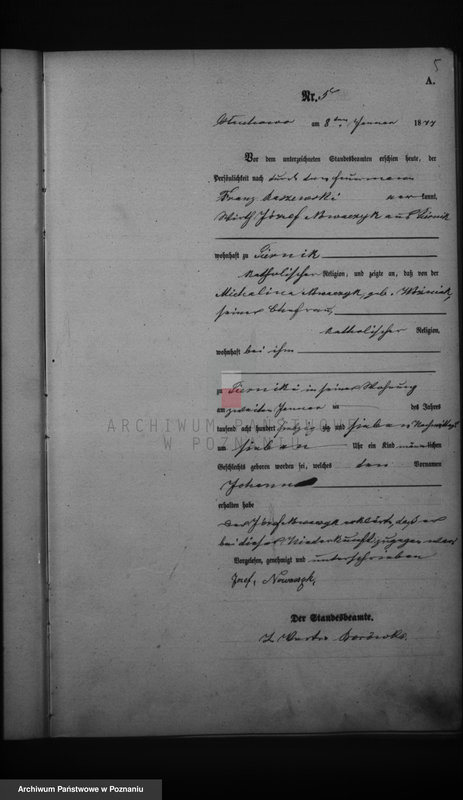 5
A.
Nr. 5
am 8ten Januar 1877
Vor dem unterzeichneten Standesbeamten erschien heute, der
Persönlichkeit nach durch den
Franz kannt,
Wirth Józef Nowaczyk aus
wohnhaft zu
katholischer Religion, und zeigte an, daß von der
Michalina Nowaczyk, geb. Woźniak,
seiner Ehefrau,
katholischer Religion,
wohnhaft bei ihm
zu in seiner Wohnung
am zweiten Januar des Jahres
tausend acht hundert siebzig und sieben Nachmittags
um sieben Uhr ein Kind männlichen
Geschlechts geboren worden sei, welches den Vornamen
Johann
erhalten habe
Der Józef Nowaczyk erklärt, daß er
bei dieser Niederkunft zugegen war
Vorgelesen, genehmigt und unterschrieben
Józef, Nowaczyk,
Der Standesbeamte.
ARCHIWUM PAŃSTWOWE
W POZNANIU
Archiwum Państwowe w Poznaniu